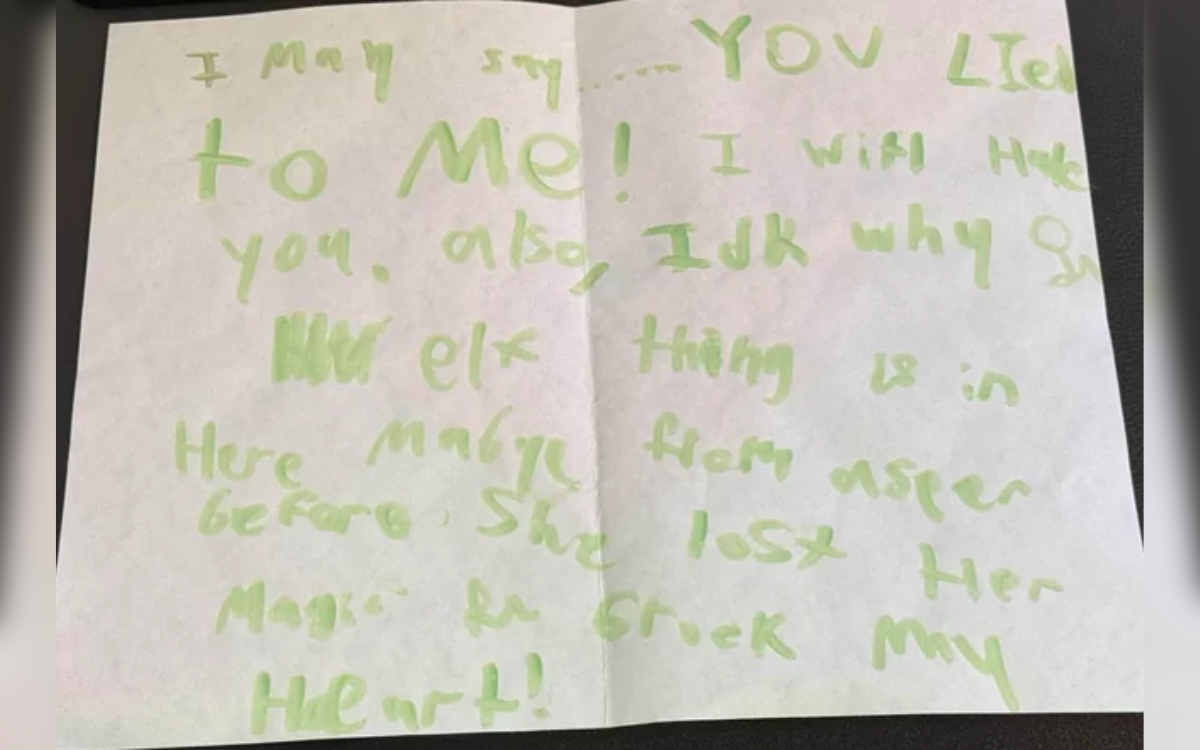 I May say...... YOU LIed
to Me! I will Hate
you. also, Idk why
elx thing is in
Here Mabye from asper
before She lost Her
Magic brock My
Heart!